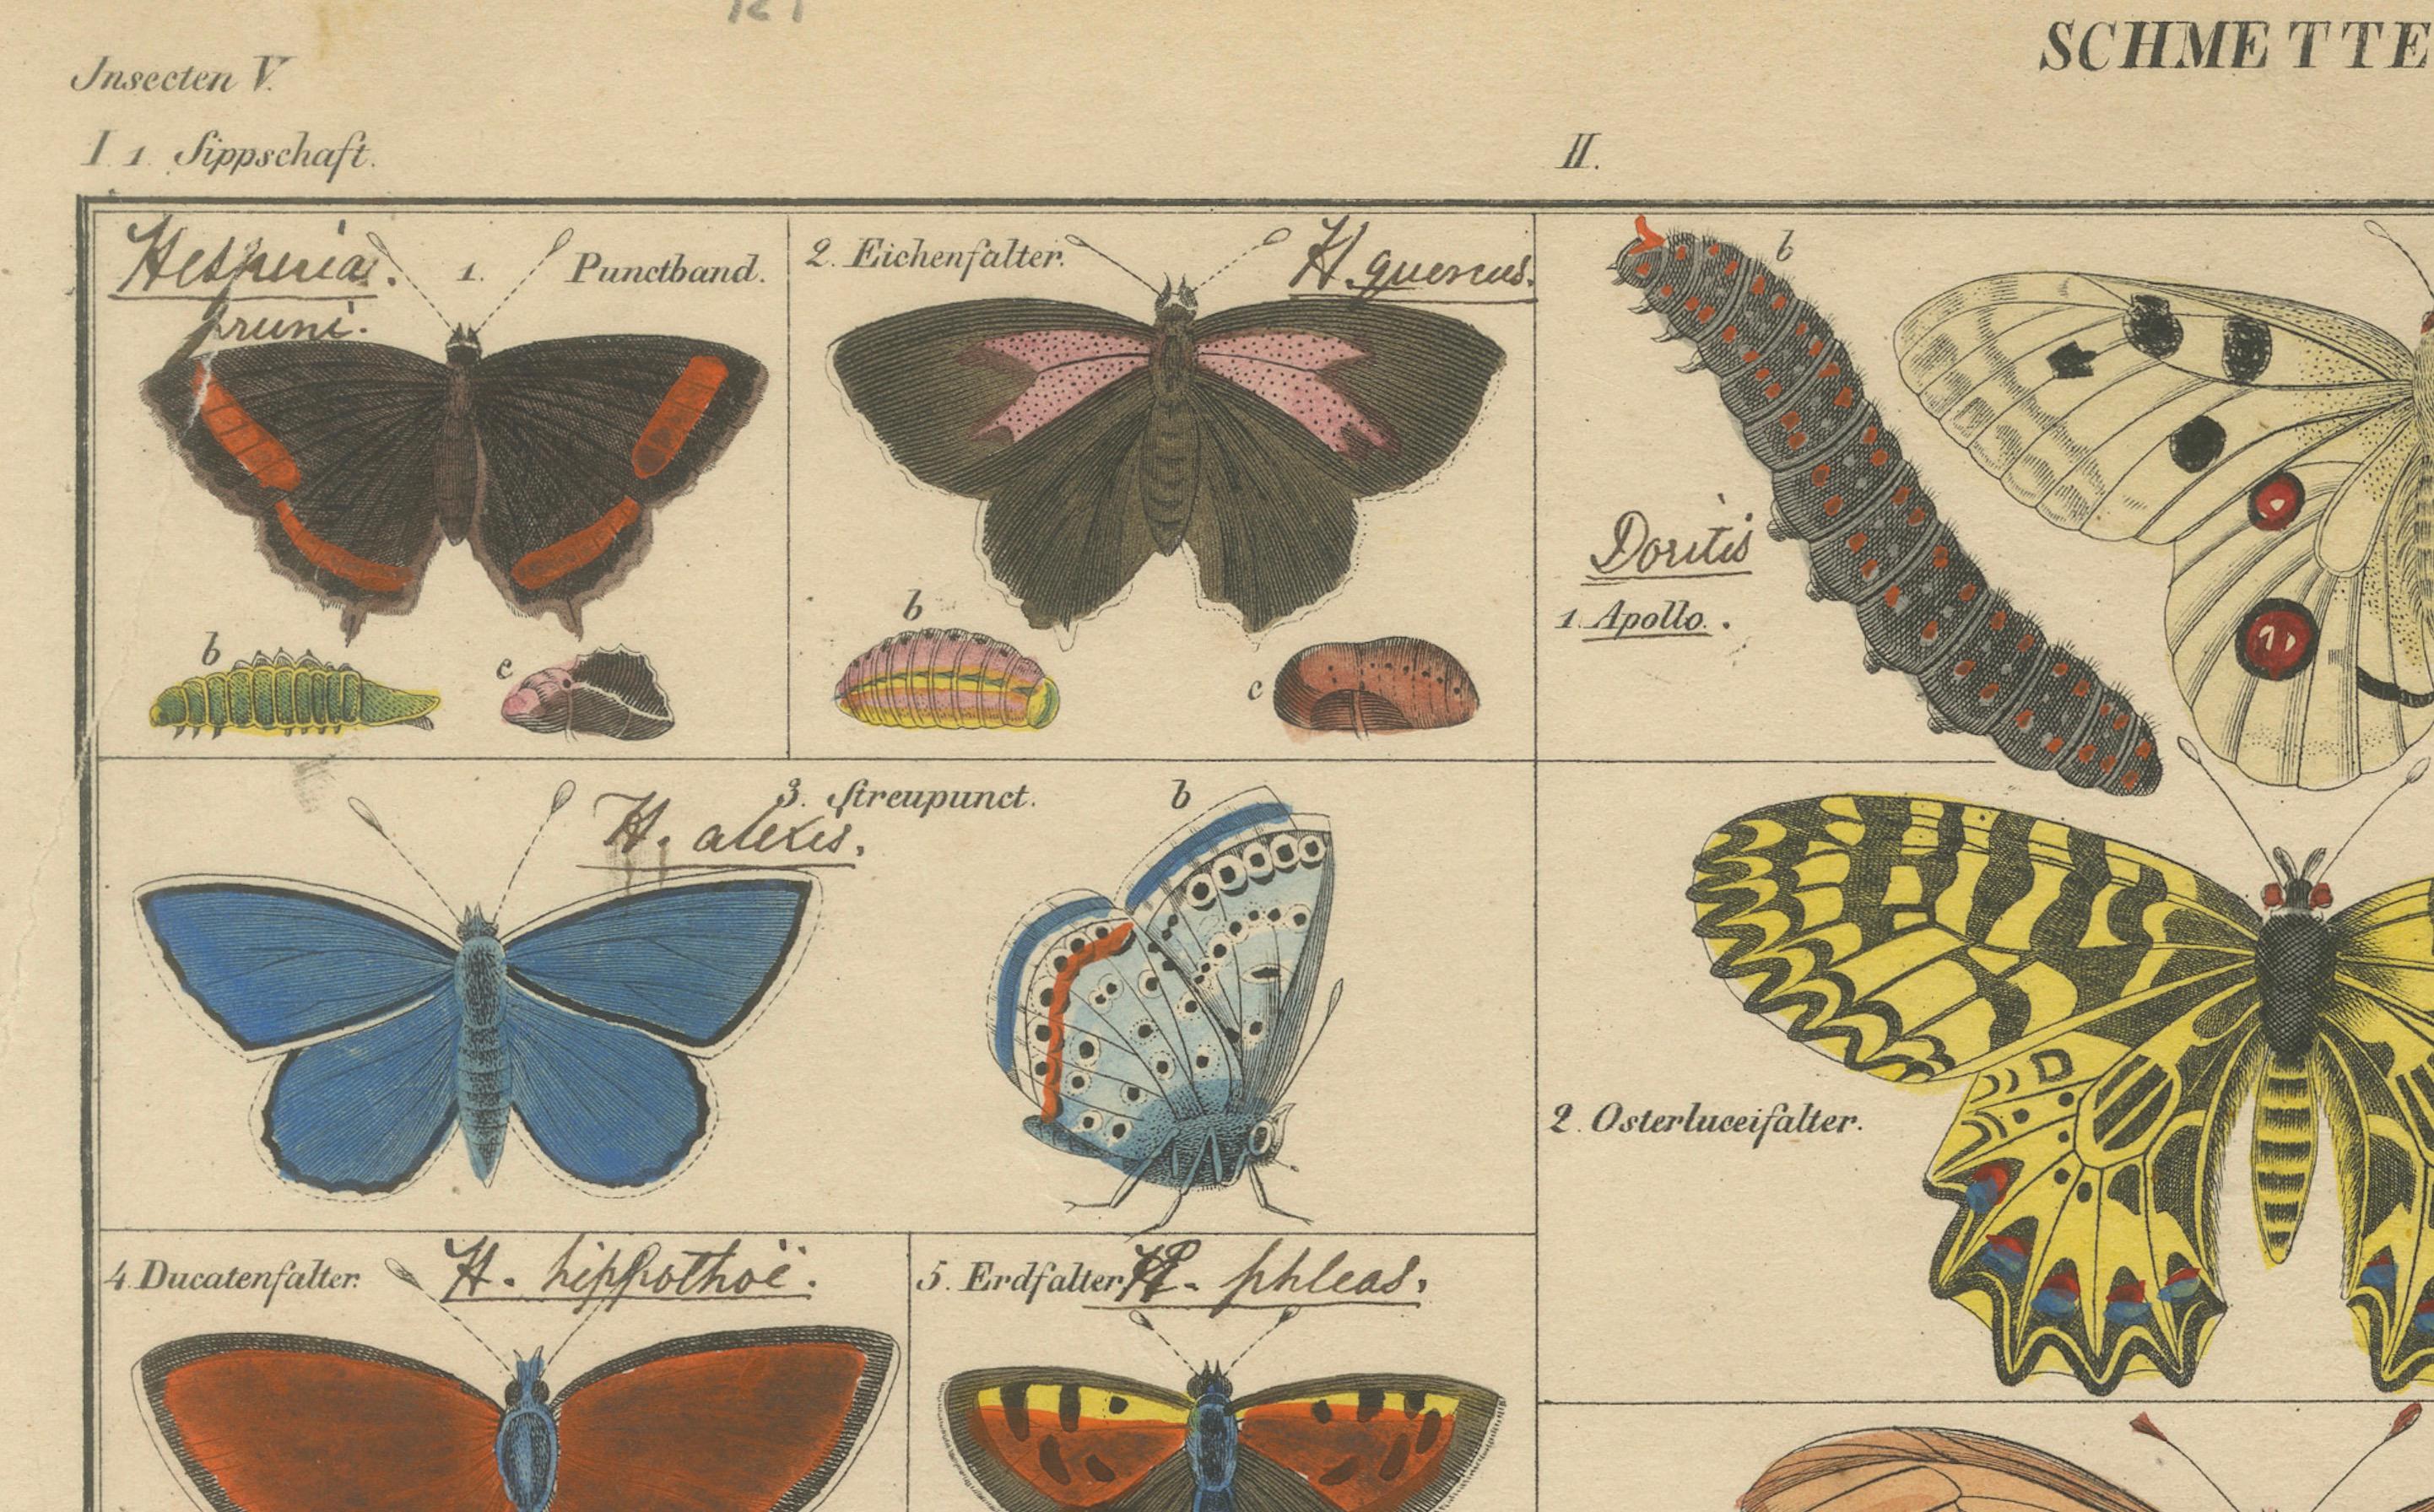 Insecten V.
SCHMETTE
I 1. Sippschaft.
II.
Hesperia.
pruni.
1. Punctband.
b
c
2. Eichenfalter.
H. quercus.
b
c
b
Doritis
1. Apollo.
3. Streupunct.
H. alexis.
b
2. Osterluceifalter.
4. Ducatenfalter.
H. hippothoë.
5. Erdfalter
H. phleas.